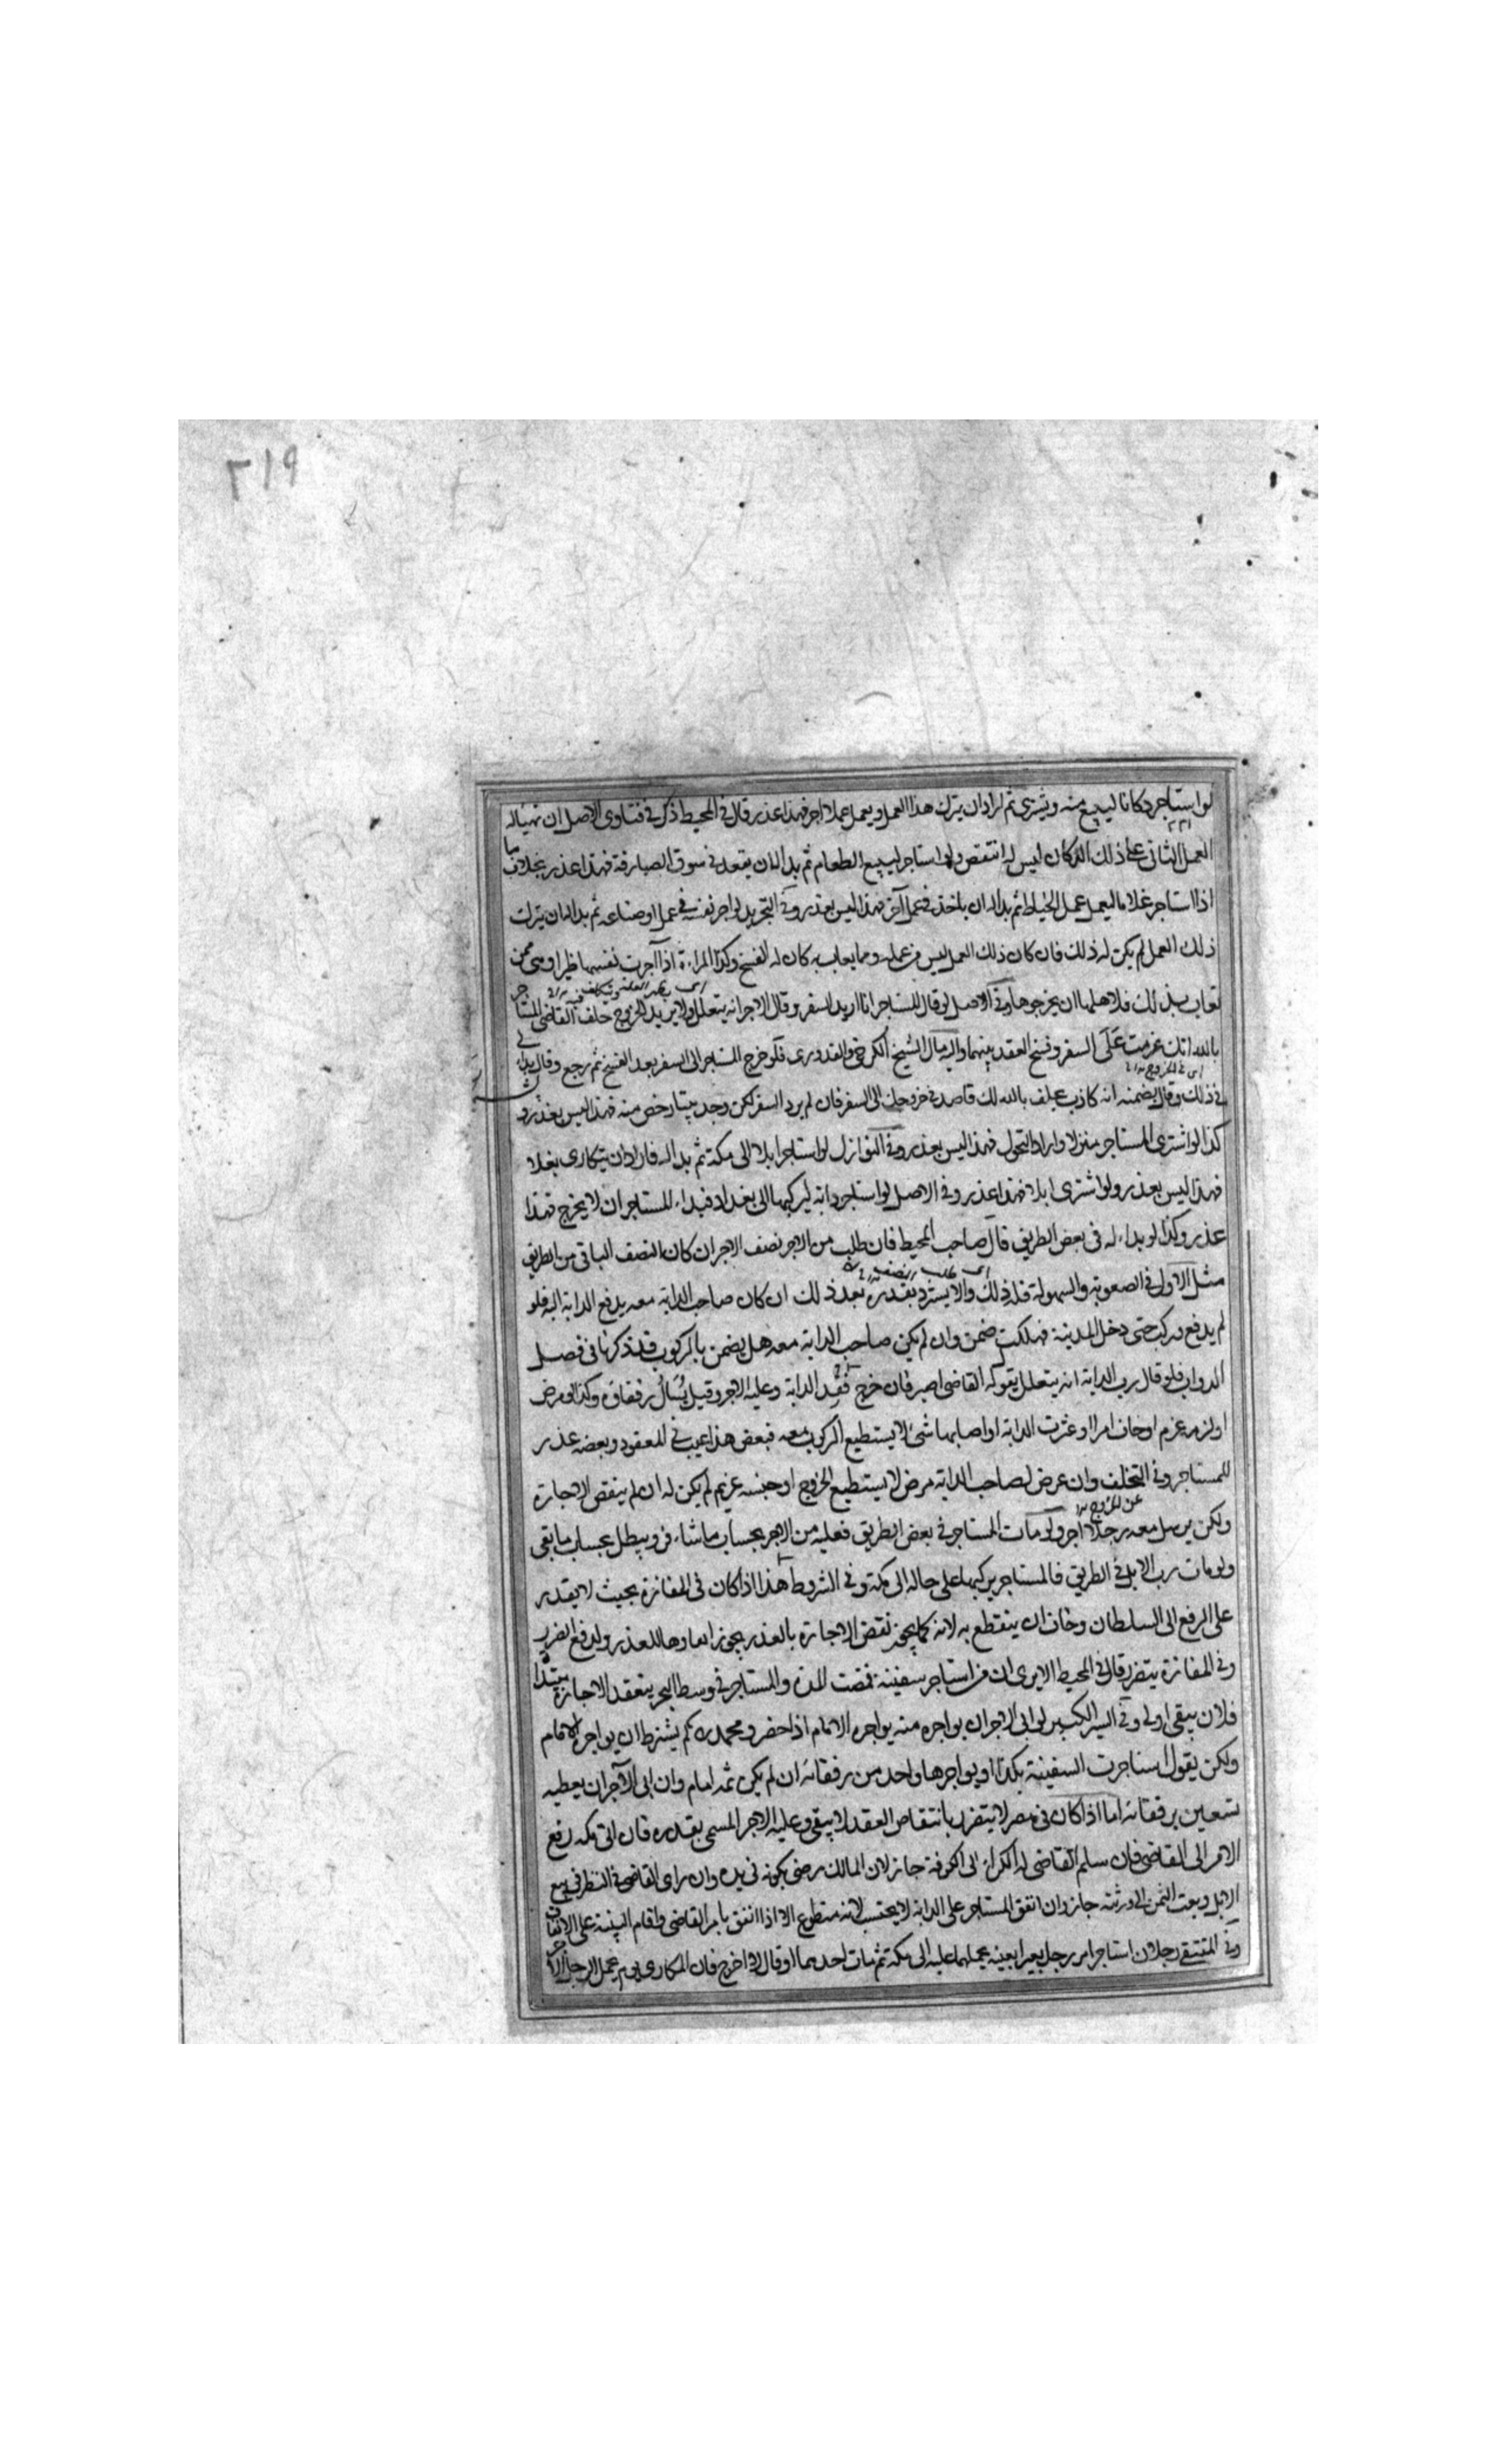 ٢١٩
لو استاجر دكانا ليبيع منه ويشترى ثم اراد ان يترك هذا العمل ويعمل عملا اخر فهذا عذر قال فى المحيط ذكر فى فتاوى الاصل ان تهياله
العمل الثانى على ذلك الدكان ليس له النقض ولو استاجر ليبيع الطعام ثم بدا له ان يقعد فى سوق الصيارفة فهذا عذر بخلاف ما
اذا استاجر غلاما ليعمل عمل الخياط ثم بدا له ان ياخذ فى عمل آخر فهذا ليس بعذر وفى التجريد لو اجر نفسه فى عمل او صناعه ثم بدا له ان يترك
ذلك العمل لم يكن له ذلك فان كان ذلك العمل ليس من عمله ومما يعاب به كان له الفسخ وكذا المراءة اذا آجرت نفسها ظيرا وهى ممن
تعاب بذلك فلاهلها ان يخرجوها وفى الاصل لو قال المستاجر انا اريد السفر وقال الاجر انه يتعلل ولا يريد الخروج حلف القاضى المستاجر
بالله انك عزمت على السفر وفسخ العقد بينهما واليه مال الشيخ الكرخى والقدورى فلو خرج المستاجر الى السفر بعد الفسخ ثم رجع وقال بدا لى
اى فى الخروج
فى ذلك وقال خصمه انه كاذب يحلف بالله لك قاصد فى خروجك الى السفر فان لم يرد السفر لكن وجد بيتا رخص منه فهذا ليس بعذر و
كذا لو اشترى المستاجر منزلا واراد التحول فهذا ليس بعذر وفى النوازل لو استاجر ابلا الى مكة ثم بدا له فاراد ان يتكارى بغلا
فهذا ليس بعذر ولو اشترى ابلا فهذا عذر وفى الاصل لو استاجر دابة ليركبها الى بغداد فبداء للمستاجر ان لا يخرج فهذا
عذر وكذا لو بداء له فى بعض الطريق قال صاحب المحيط فان طلب من الاجر نصف الاجر ان كان النصف الباقى من الطريق
اى طلب النصف
مثل الاول فى الصعوبة والسهولة فله ذلك والا يسترد بقدره بعد ذلك ان كان صاحب الدابة معه يدفع الدابة اليه فلو
لم يدفع وركب حتى دخل المدينة فهلكت ضمن وان لم يكن صاحب الدابة معه هل يضمن بالركوب قد ذكرنا فى فصل
الدواب فلو قال رب الدابة انه يتعلل يقول له القاضى اصبر فان خرج فقد الدابة وعليه الاجر وقيل يُسال رفقاؤه وكذا لو مرض
او لزمه غريم او خاف امرا او عثرت الدابة او اصابها شئ لا يستطيع الركوب معه فبعض هذا عيب فى المعقود وبعضه عذر
للمستاجر وفى التخلف وان عرض لصاحب الدابة مرض لا يستطيع الخروج او حبسه غريم لم يكن له ان ينقض الاجارة
عن الخروج
ولكن يرسل معه رجلا اخر ولو مات المستاجر فى بعض الطريق فعليه من الاجر بحساب ما ويبطل بحساب ما بقى
ولو مات رب الابل فى الطريق فالمستاجر يركبها على حاله الى مكة وفى الشروط هذا اذا كان فى المفازة بحيث لا يقدر
على الرفع الى السلطان وخاف ان ينقطع به لانه كما يجوز نقض الاجارة بالعذر يجوز للعذر ولدفع الضرر
وفى المفازة يتضرر قال فى المحيط الا يرى ان من استاجر سفينة فمضت المدة والمستاجر فى وسط البحر ينعقد الاجارة مبتدأ
فلان يبقى اولى وفى السير الكبير لو ابى الاجر ان يواجره منه يواجره الامام اذا حضر ومحمد لم يشترط ان يواجره الامام
ولكن يقول استاجرت السفينة بكذا او يواجرها واحد من رفقائه ان لم يكن ثمه امام وان ابى الآجر ان يعطيه
يستعين برفقائه اما اذا كان فى مصر لا يتضرر بانتقاض العقد لا يبقى وعليه الاجر المسمى بقدره فان اتى مكه رفع
الامر الى القاضى فان سلم القاضى له الكراء الى الكوفة جاز لان المالك رضى بكونه فى يده وان راى القاضى النظر فى بيع
الابل وبعث الثمن الى ورثته جاز وان انفق المستاجر على الدابة لا يحتسب لانه متطوع الا اذا انفق بامر القاضى واقام البينة على الانفاق
وفى المنتقى رجلان استاجرا من رجل بعيرا بعينه يحملهما عليه الى مكة ثم مات احدهما او قال لا اخرج فان المكارى